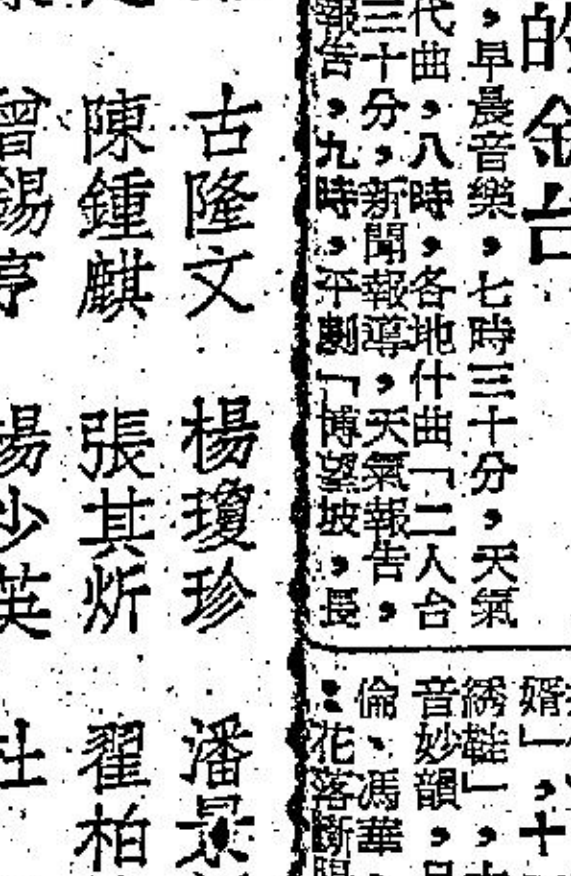 的金台
，早晨音樂，七時三十分，天氣
代曲，八時，各地什曲「二人台
三十分，新聞報導，天氣報告，
報告，九時，平劇「博望坡，長
婿」，十
綉鞋」，
音妙韻，
倫、馮華
：花落斷腸
古隆文 楊瓊珍 潘景
陳鍾麒 張其炘 翟柏
曾錫亭 楊少英 杜